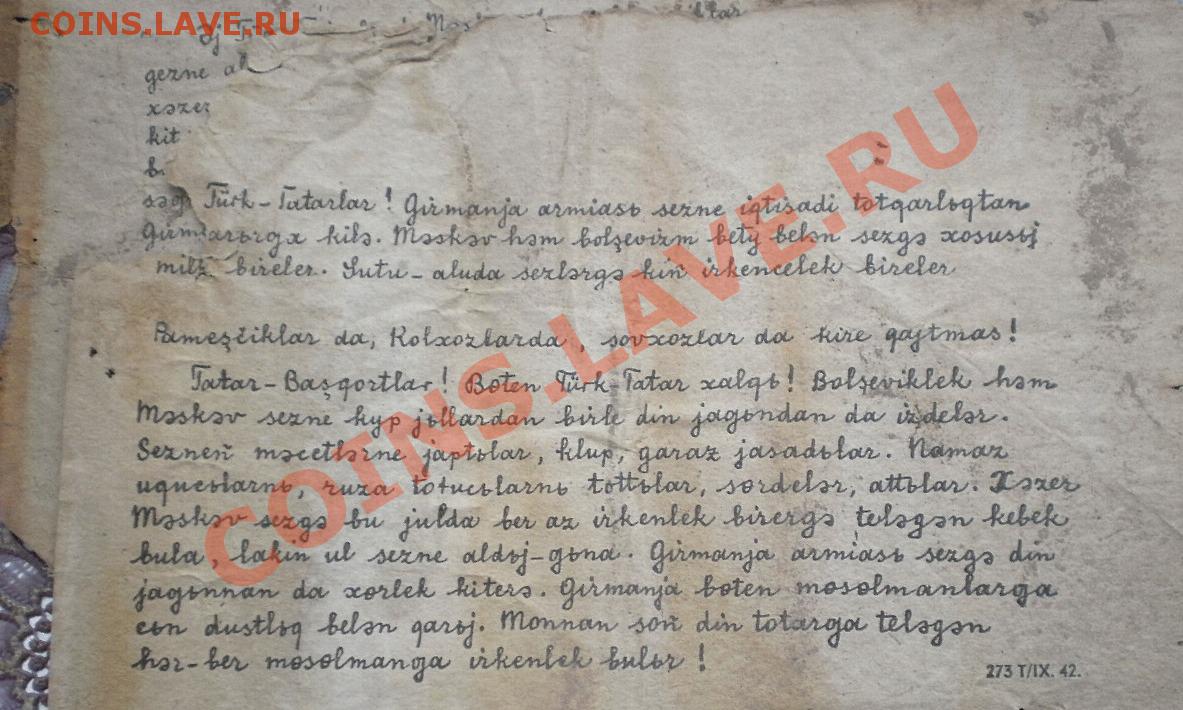 COINS.LAVE.RU
gezne
xəzer
kit
Türk-Tatarlar! Girmanja armiasь sezne iqtisadi totqarlьqtan
kilə. Məskəv həm bolşevizm bety belən sezgə xosusьj
milk bireler. Sutu-aluda sezlərgə kiñ irkencelek bireler
Pameşciklar da, Kolxozlarda, sovxozlar da kire qajtmas!
Tatar-Başqortlar! Bөten Türk Tatar xalqь! Bolşeviklek həm
Məskəv sezne kyp jullardan birle din jagьndan da izdelər.
Sezneñ məcetlərne japtьlar, klup, garaz jasadьlar. Namaz
uqucьlarnь, ruza totucьlarnь tottьlar, sөrdelər, attьlar. Xəzer
Məskəv sezgə bu julda ber az irkenlek birergə teləgən kebek
bula, lakin ul sezne aldьj-gьna. Girmanja armiasь sezgə din
jagьnnan da xөrlek kiterə. Girmanja bөten mөsөlmanlarga
cьn duslьq belən qarьj. Monnan soñ din totarga teləgən
hər-ber mөsөlmanga irkenlek bulьr!
273 T/IX. 42.
COINS.LAVE.RU